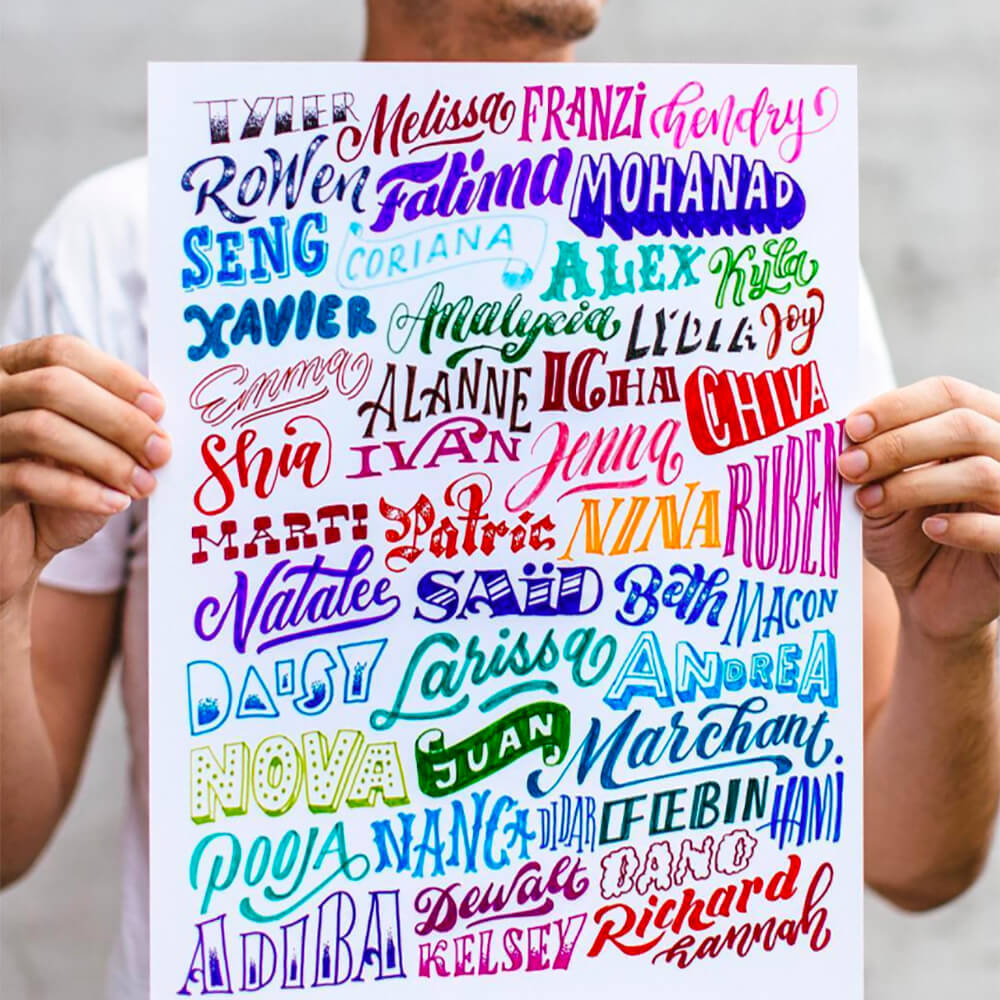 TYLER Melissa FRANZi hendry
RoWen Fatima MOHANAD
SENG CORIANA ALEX Kyla
XAVIER Analycia LYDIA Joy
Emma ALANNE ICHA CHIVA
Shia IVAN Jenna
MARTI Patric NINA RUBEN
Natalee SAïD Beth MACON
DAISY Larissa ANDREA
NOVA JUAN Marchant
POOJA NANCA DIDAR FEBIN HAMi
ADIBA Dewalt DANO Richard
KELSEY hannah